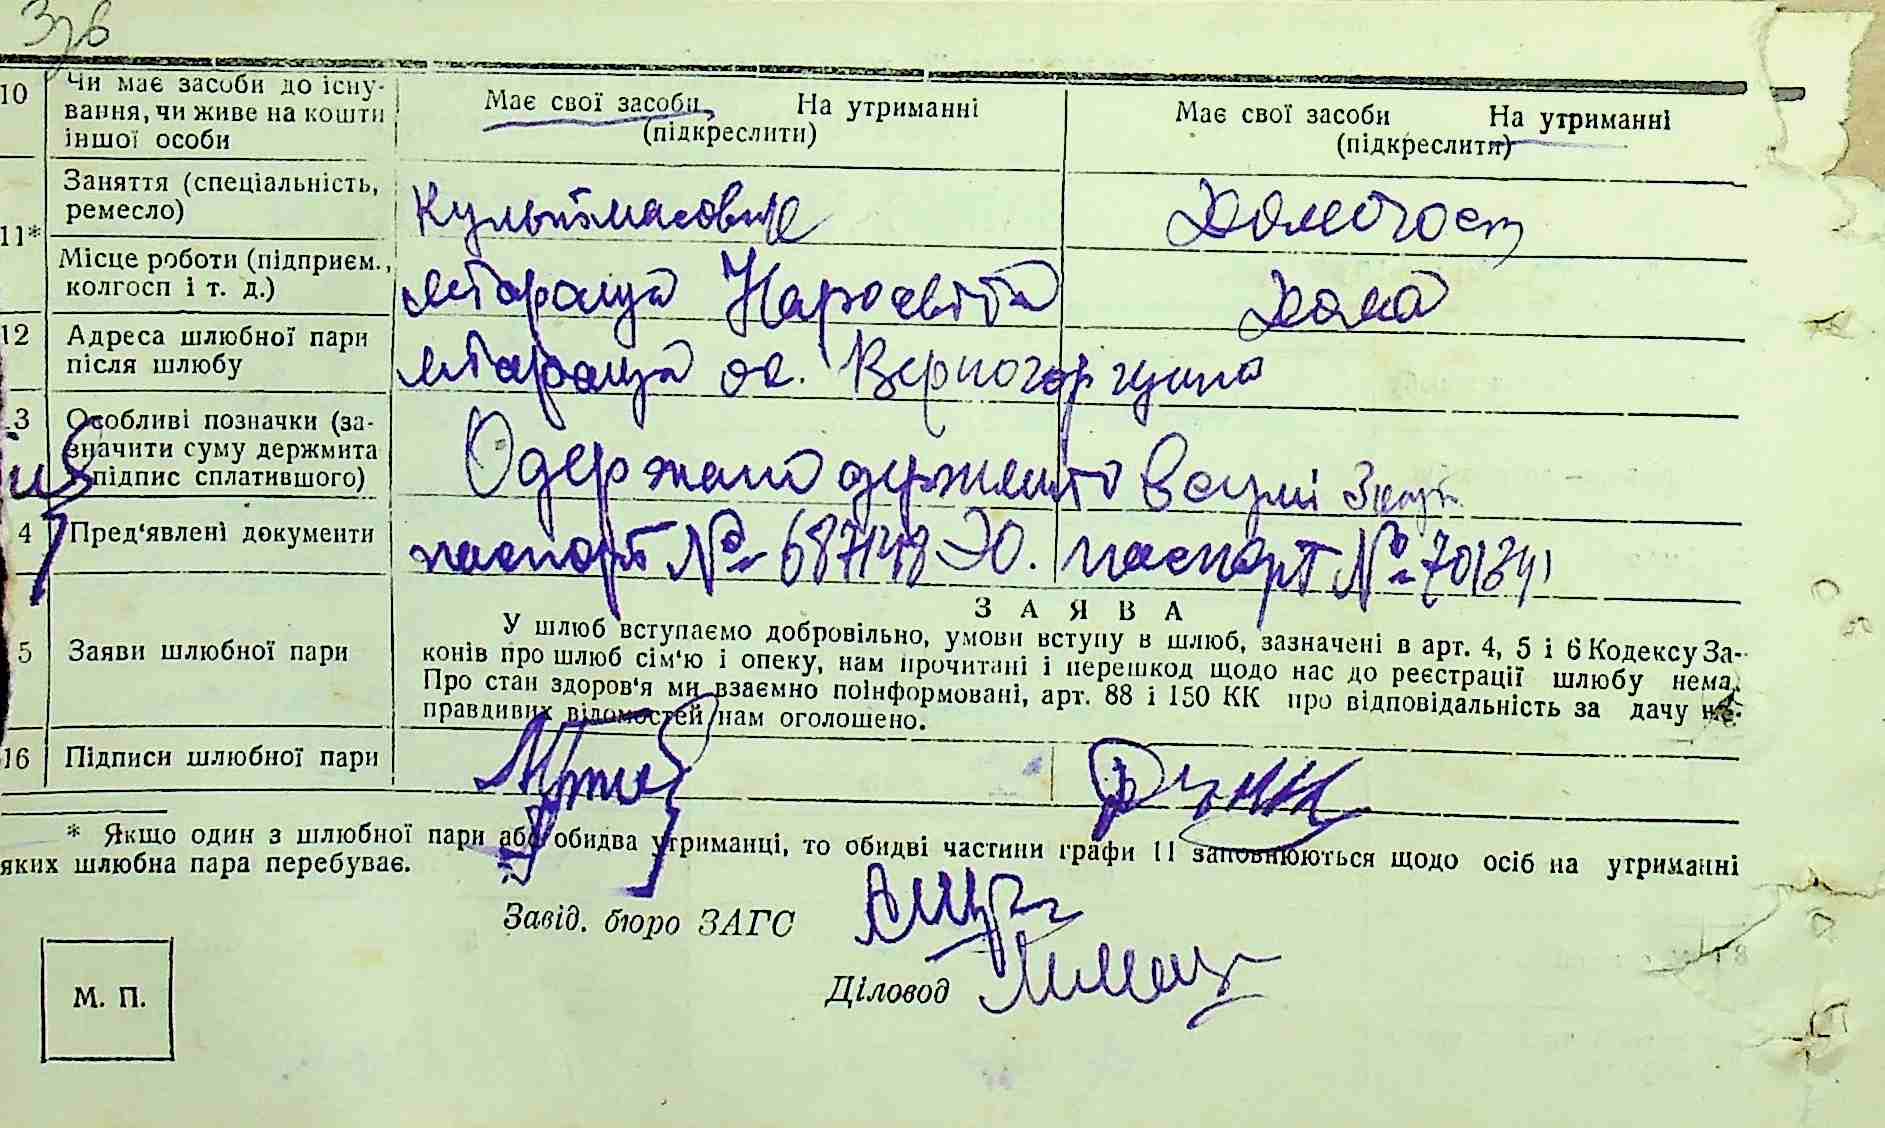 Ззв
10 Чи має засоби до існу-
вання, чи живе на кошти
іншої особи
Має свої засоби На утриманні
(підкреслити)
Має свої засоби На утриманні
(підкреслити)
11* Заняття (спеціальність,
ремесло)
Культмасовик
Домогосп
Місце роботи (підприєм.,
колгосп і т. д.)
Наросвіта
дома
12 Адреса шлюбної пари
після шлюбу
3 Особливі позначки (за-
значити суму держмита
підпис сплатившого)
Одержано держмито в сумі 3 крб
4 Пред'явлені документи
паспорт № 687148 ЭО. паспорт № 701341
З А Я В А
5 Заяви шлюбної пари
У шлюб вступаємо добровільно, умови вступу в шлюб, зазначені в арт. 4, 5 і 6 Кодексу За-
конів про шлюб сім'ю і опеку, нам прочитані і перешкод щодо нас до реєстрації шлюбу нема.
Про стан здоров'я ми взаємно поінформовані, арт. 88 і 150 КК про відповідальність за дачу не-
правдивих відомостей нам оголошено.
16 Підписи шлюбної пари
* Якщо один з шлюбної пари або обидва утриманці, то обидві частини графи 11 заповнюються щодо осіб на утриманні
яких шлюбна пара перебуває.
Завід. бюро ЗАГС
Діловод
М. П.